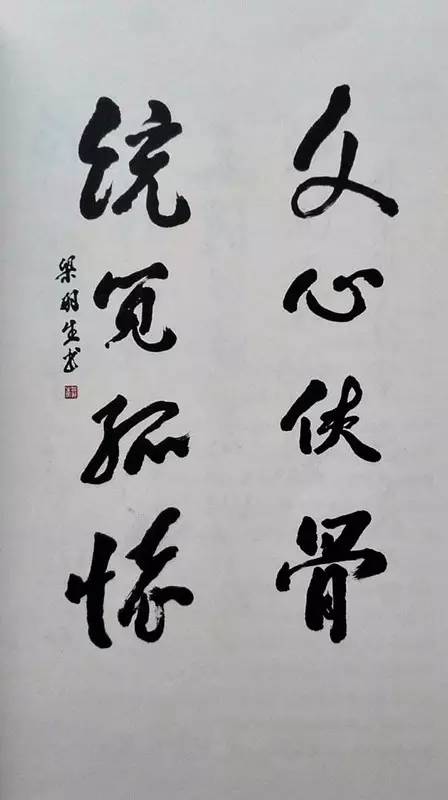 文心侠骨
统览孤怀
梁羽生书